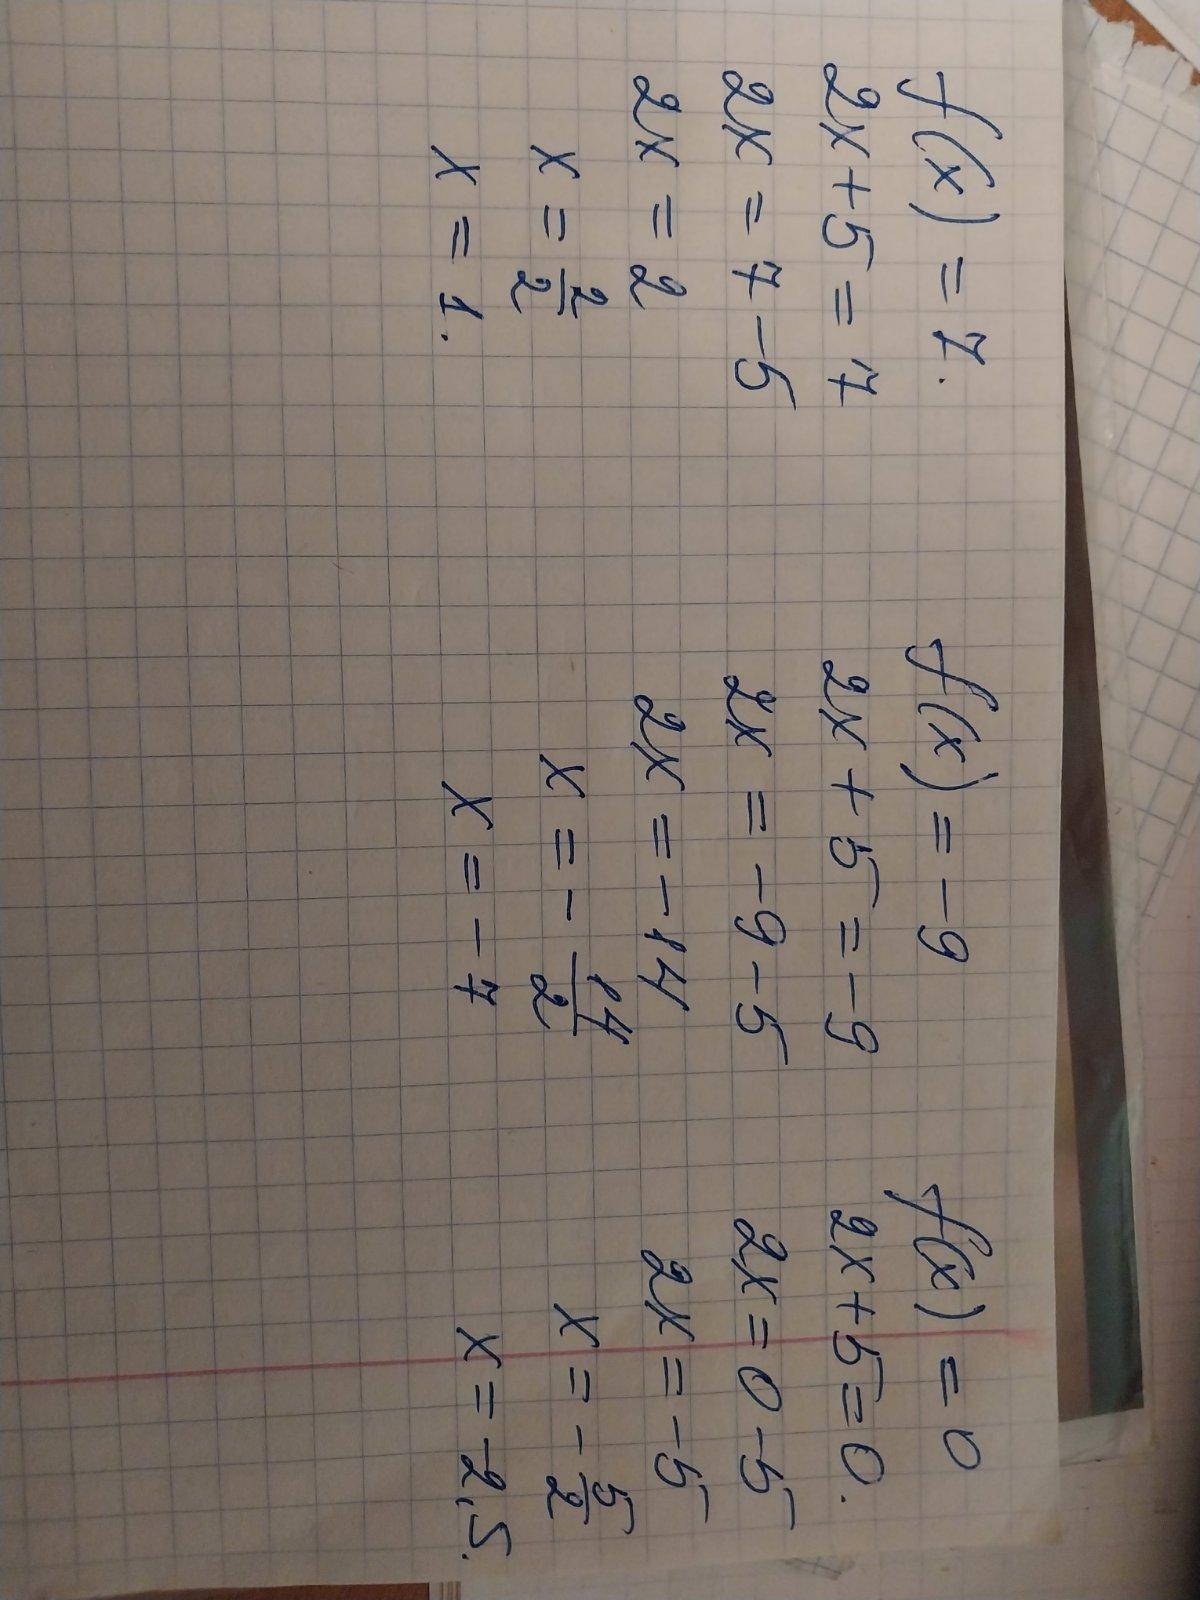 f(x) = 7.
2x + 5 = 7
2x = 7 - 5
2x = 2
x = 2/2
x = 1.
f(x) = -9
2x + 5 = -9
2x = -9 - 5
2x = -14
x = - 14/2
x = -7
f(x) = 0
2x + 5 = 0.
2x = 0 - 5
2x = -5
x = - 5/2
x = -2,5.